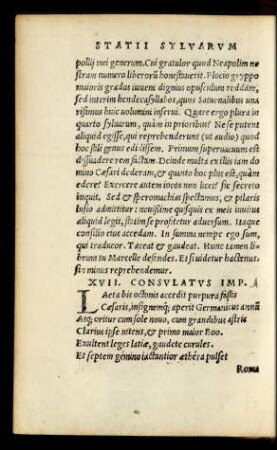 STATII SYLVARVM
pollij mei generum. Cui gratulor quod Neapolim no
stram numero liberorũ honestauerit. Flocio gryppo
maioris gradus iuueni dignius opusculum reddam,
sed interim hendecasyllabos, quos Saturnalibus una
risimus huic uolumini inserui. Quare ergo plura in
quarto syluarum, quàm in prioribus? Ne se putent
aliquid egisse, qui reprehenderunt (ut audio) quod
hoc stili genus edidissem. Primum superuacuum est
dissuadere rem factam. Deinde multa ex illis iam do
mino Cæsari dederam, & quanto hoc plus est, quàm
edere? Exercere autem iocos non licet? sic secreto
inquit. Sed & spæromachias spectamus, & pilaris
lusio admittitur: nouissime quisquis ex meis inuitus
aliquid legit, statim se profitetur aduersum. Itaque
consilio eius accedam. In summa nempe ego sum,
qui traducor. Taceat & gaudeat. Hunc tamen li
brum tu Marcelle defendes. Et si uidetur hactenus.
sin minus reprehendemur.
XVII. CONSVLATVS IMP.
LAeta bis octonis accedit purpura fastis
Cæsaris, insignemq; aperit Germanicus annũ
Atq; oritur cum sole nouo, cum grandibus astris
Clarius ipse nitens, & primo maior Eoo.
Exultent leges latiæ, gaudete curules.
Et septem gemino iactantior æthera pulset
Roma